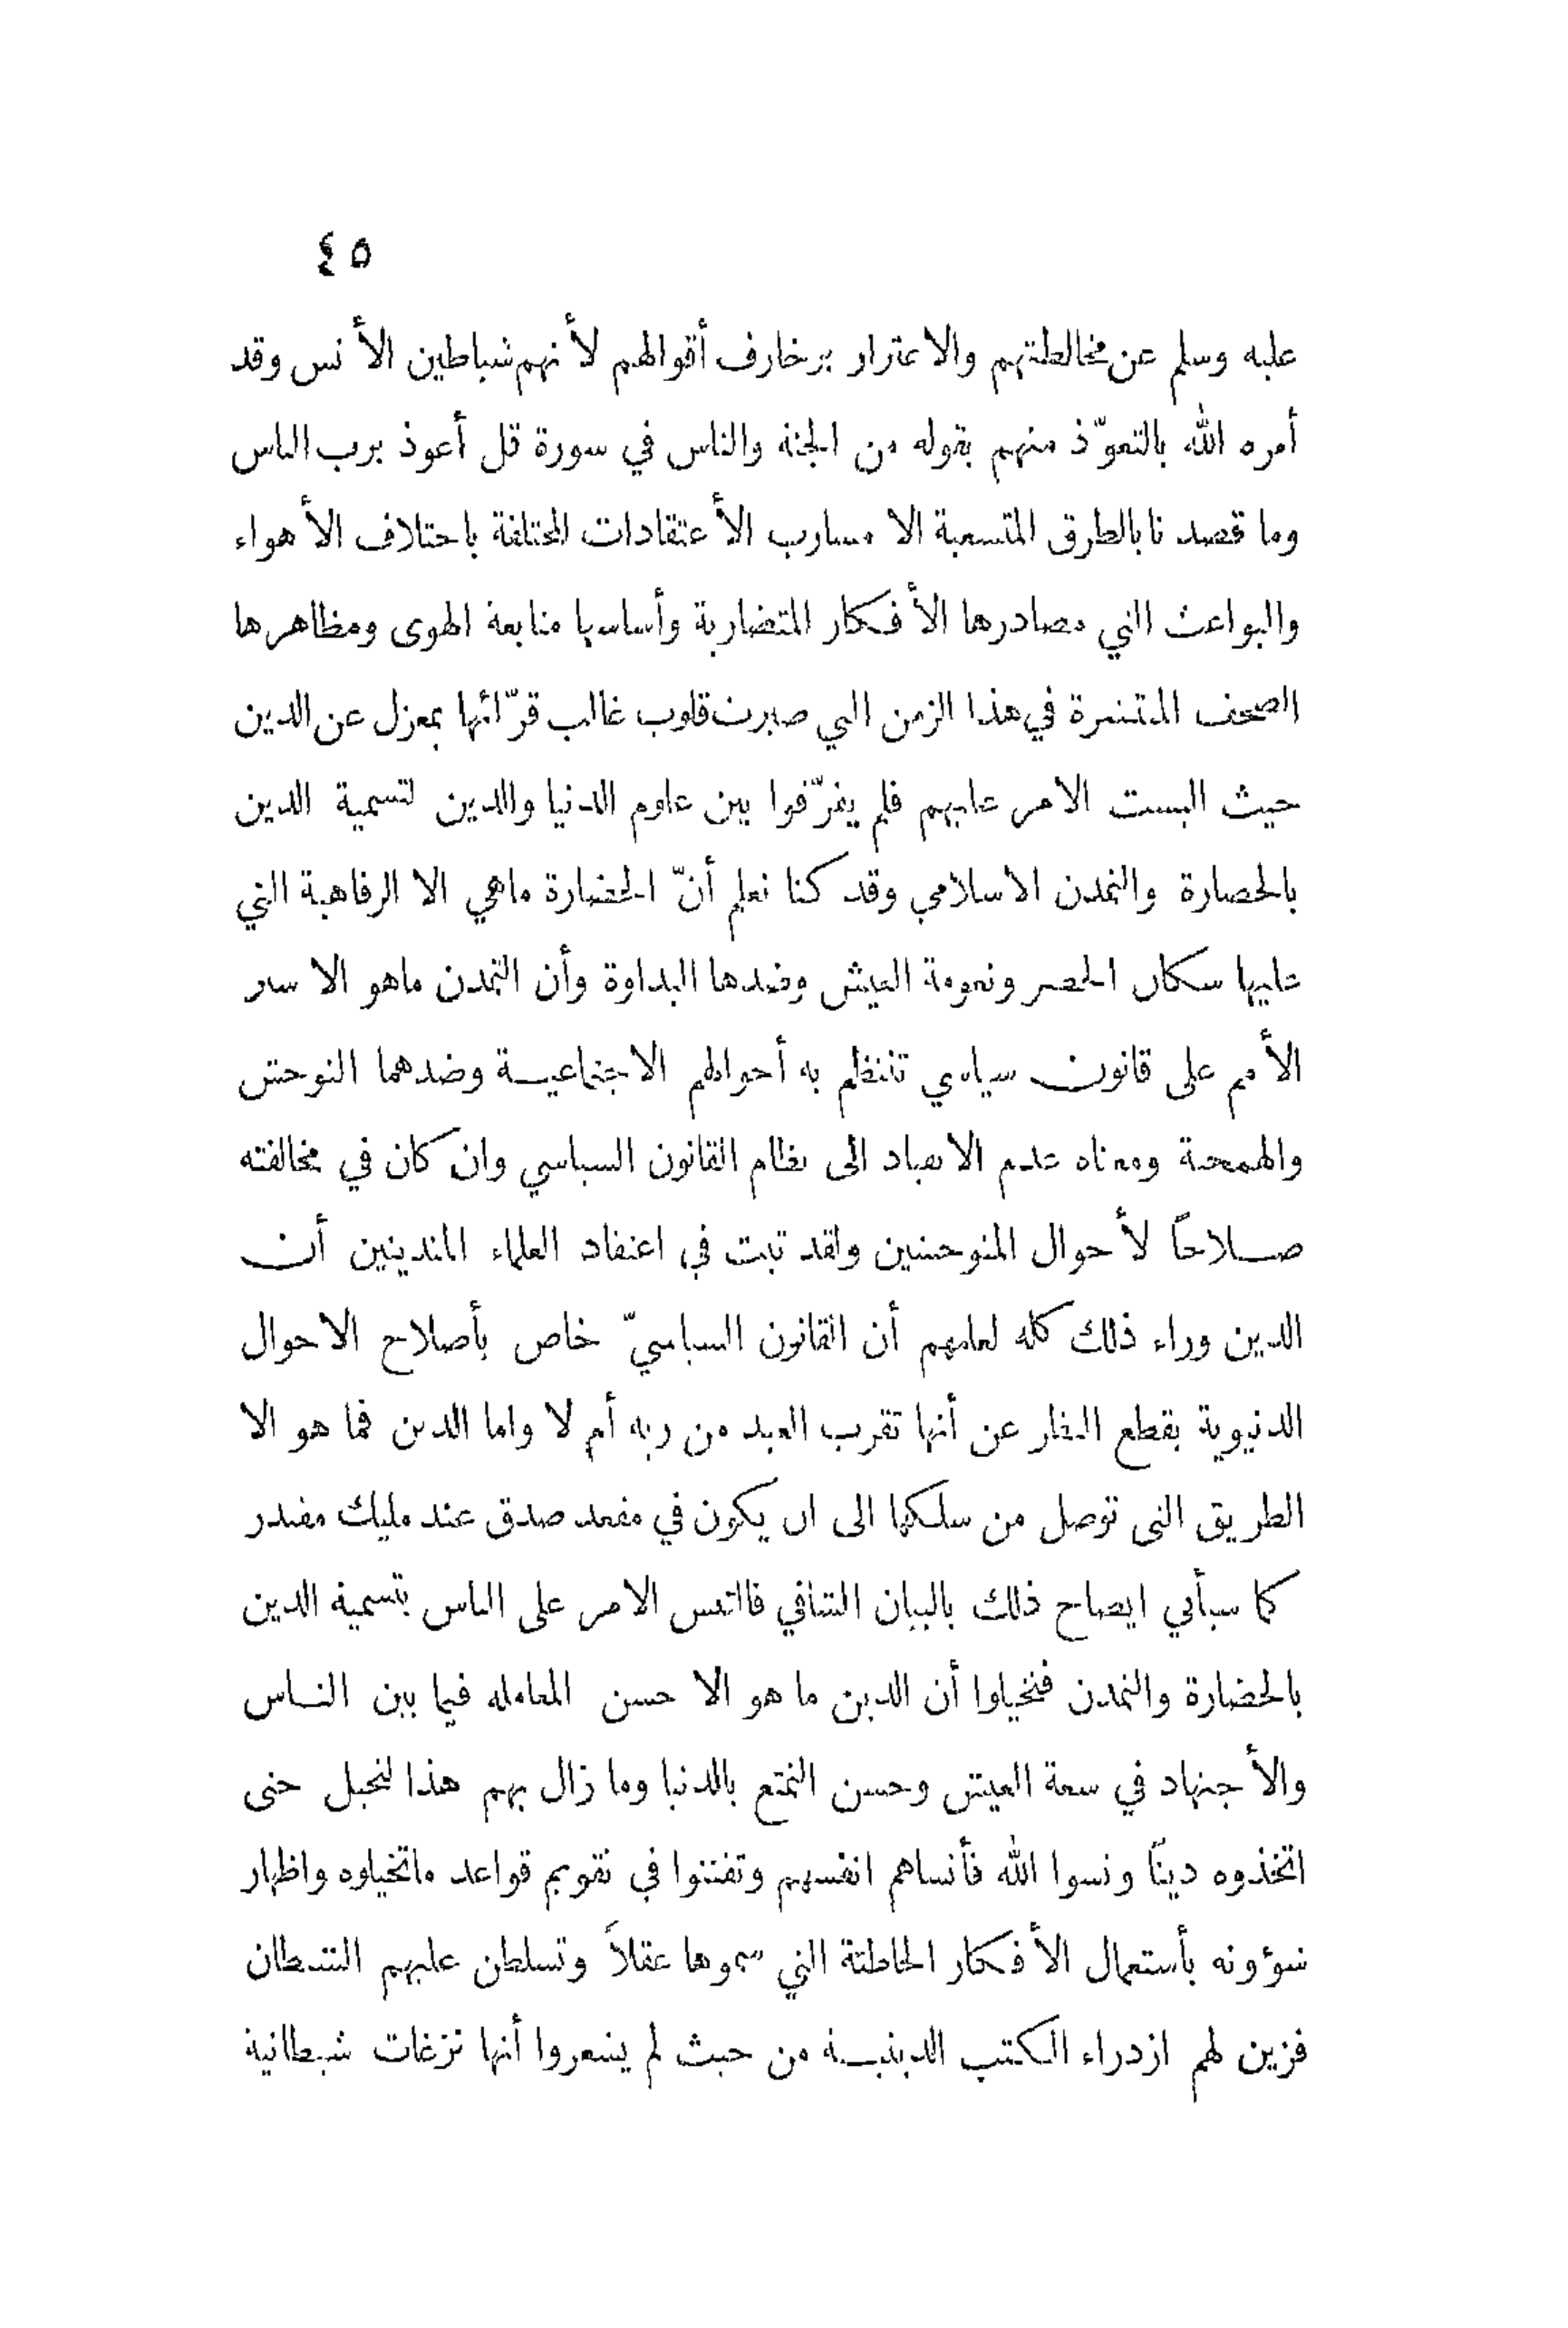 ٤٥
عليه وسلم عن مخالطتهم والاغترار بزخارف أقوالهم لأنهم شياطين الأنس وقد
أمره الله بالتعوّذ منهم بقوله من الجنة والناس في سورة قل أعوذ برب الناس
وما قصدنا بالطرق المتشعبة الا مسارب الأعتقادات المختلفة باختلاف الأهواء
والبواعث التي مصادرها الأفكار المتضاربة وأساسها متابعة الهوى ومظاهرها
الصحف المنتشرة في هذا الزمن التي صيرت قلوب غالب قرّائها بمعزل عن الدين
حيث البست الامر عليهم فلم يفرّقوا بين علوم الدنيا والدين لتسمية الدين
بالحضارة والتمدن الاسلامي وقد كنا نعلم أنّ الحضارة ماهي الا الرفاهية التي
عليها سكان الحضر ونعومة العيش وضدها البداوة وأن التمدن ماهو الا سير
الأمم على قانون سياسي تنتظم به أحوالهم الاجتماعيـة وضدهما التوحش
والهمجية ومعناه عدم الانقياد الى نظام القانون السياسي وان كان في مخالفته
صـلاحًا لأحوال المتوحشين ولقد ثبت في اعتقاد العلماء المتدينين أن
الدين وراء ذلك كله لعلمهم أن القانون السياسيّ خاص بأصلاح الاحوال
الدنيوية بقطع النظر عن أنها تقرب العبد من ربه أم لا واما الدين فما هو الا
الطريق التي توصل من سلكها الى ان يكون في مقعد صدق عند مليك مقتدر
كما سيأتي ايضاح ذلك بالبيان الشافي فالتبس الامر على الناس بتسمية الدين
بالحضارة والتمدن فتخيلوا أن الدين ما هو الا حسن المعامله فيما بين النـاس
والأجتهاد في سعة العيش وحسن التمتع بالدنيا وما زال بهم هذا لتخيل حتى
اتخذوه دينًا ونسوا الله فأنساهم انفسهم وتفننوا في تقويم قواعد ماتخيلوه واظهار
شؤونه بأستعمال الأفكار الخاطئة التي سموها عقلاً وتسلطن عليهم الشيطان
فزين لهم ازدراء الكتب الدينيـة من حيث لم يشعروا أنها نزغات شيطانية